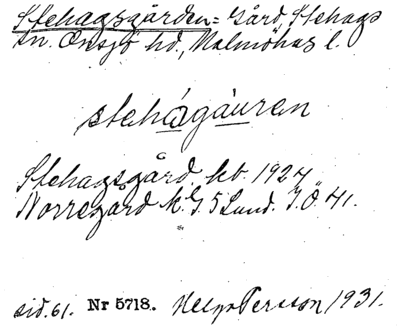 Stehagsgården = Gård, Stehags
sn. Onsjö hd., Malmöhus l.
stehá̱gàu̱ren
Stehagsgård. kb. 1924
Norregård K. G. 5 Lund. I. Ö 41.
sid. 61. Nr 5718. Helge Persson 1931.